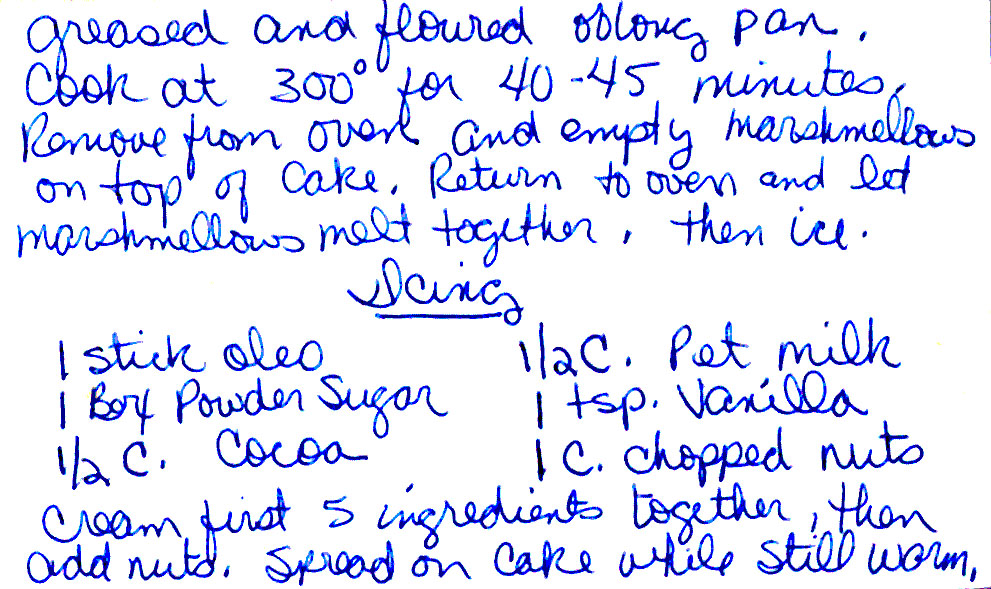 greased and floured oblong pan.
Cook at 300° for 40-45 minutes.
Remove from oven and empty marshmellows
on top of Cake. Return to oven and let
marshmellows melt together, then ice.
Icing
1 stick oleo 1/2 C. Pet milk
1 Box Powder Sugar 1 tsp. Vanilla
1/2 C. Cocoa 1 C. chopped nuts
Cream first 5 ingredients together, then
add nuts. Spread on Cake while still warm.